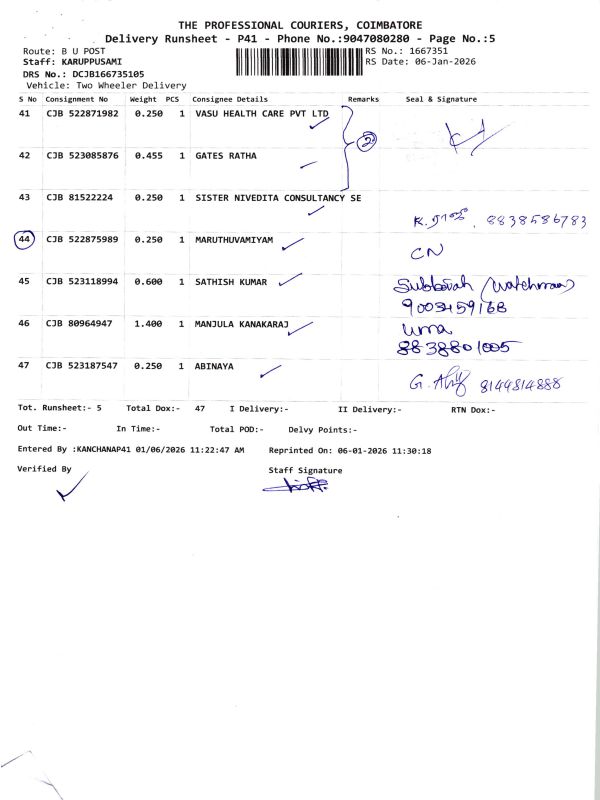 THE PROFESSIONAL COURIERS, COIMBATORE
Delivery Runsheet - P41 - Phone No.:9047080280 - Page No.:5
Route: B U POST RS No.: 1667351
Staff: KARUPPUSAMI RS Date: 06-Jan-2026
DRS No.: DCJB166735105
Vehicle: Two Wheeler Delivery
S No Consignment No Weight PCS Consignee Details Remarks Seal & Signature
41 CJB 522871982 0.250 1 VASU HEALTH CARE PVT LTD
2
42 CJB 523085876 0.455 1 GATES RATHA
43 CJB 81522224 0.250 1 SISTER NIVEDITA CONSULTANCY SE
8838586783
44 CJB 522875989 0.250 1 MARUTHUVAMIYAM
CN
45 CJB 523118994 0.600 1 SATHISH KUMAR
(Watchman)
46 CJB 80964947 1.400 1 MANJULA KANAKARAJ
uma
8838801005
47 CJB 523187547 0.250 1 ABINAYA
G. 8144814888
Tot. Runsheet:- 5 Total Dox:- 47 I Delivery:- II Delivery:- RTN Dox:-
Out Time:- In Time:- Total POD:- Delvy Points:-
Entered By :KANCHANAP41 01/06/2026 11:22:47 AM Reprinted On: 06-01-2026 11:30:18
Verified By Staff Signature